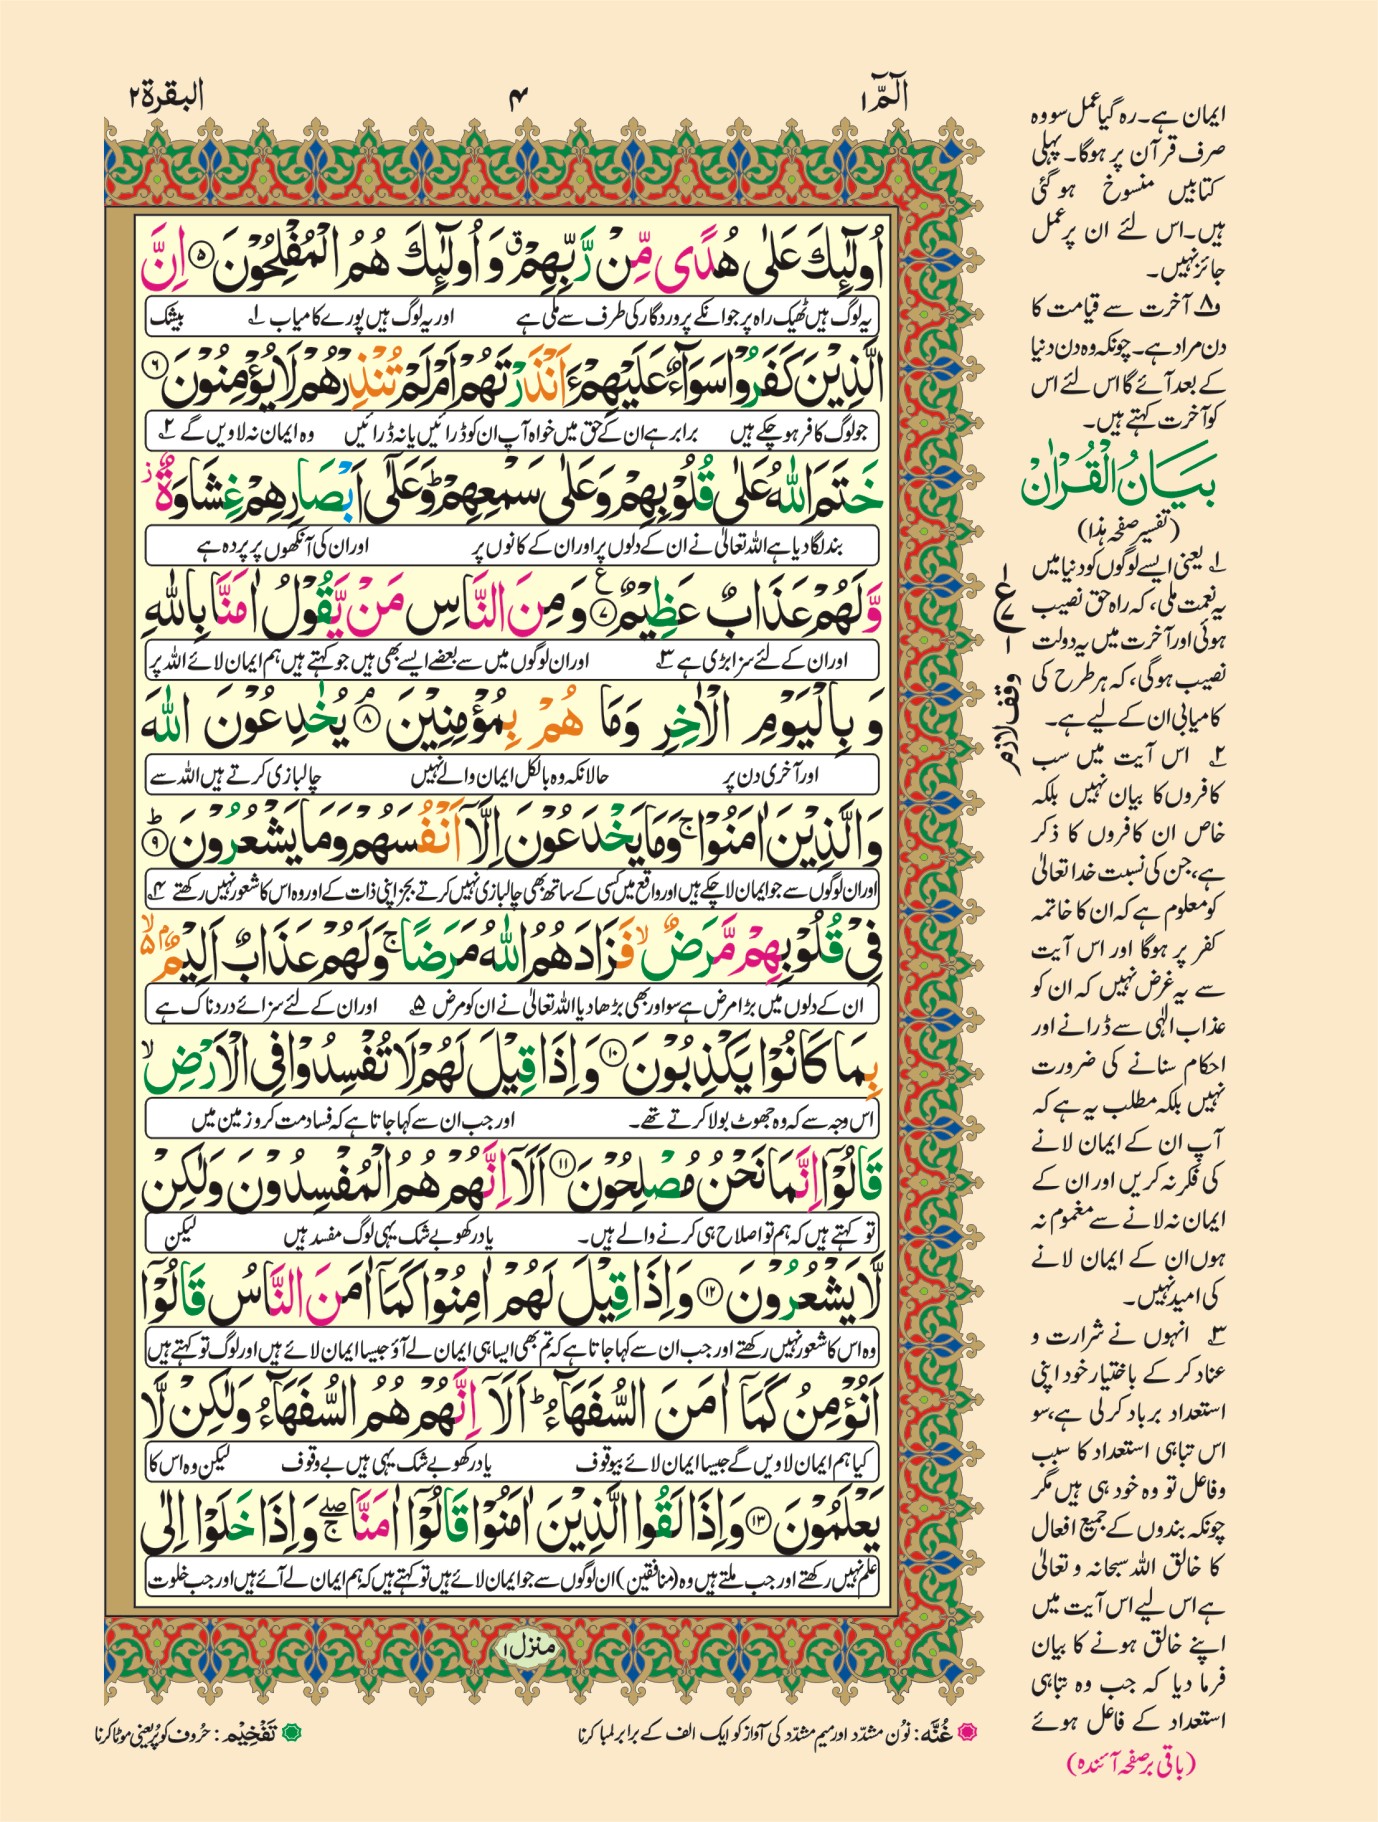 الٓمّٓ ۱
۴
البقرة ۲
اُولٰٓئِكَ عَلٰى هُدًى مِّنْ رَّبِّهِمْ ۗ وَ اُولٰٓئِكَ هُمُ الْمُفْلِحُوْنَ ۵ اِنَّ
یہ لوگ ہیں ٹھیک راہ پر جو انکے پروردگار کی طرف سے ملی ہے اور یہ لوگ ہیں پورے کامیاب ۱؎ بیشک
الَّذِيْنَ كَفَرُوْا سَوَآءٌ عَلَيْهِمْ ءَاَنْذَرْتَهُمْ اَمْ لَمْ تُنْذِرْهُمْ لَا يُؤْمِنُوْنَ ۶
جو لوگ کافر ہو چکے ہیں برابر ہے ان کے حق میں خواہ آپ ان کو ڈرائیں یا نہ ڈرائیں وہ ایمان نہ لاویں گے ۲؎
خَتَمَ اللّٰهُ عَلٰى قُلُوْبِهِمْ وَ عَلٰى سَمْعِهِمْ ؕ وَ عَلٰٓى اَبْصَارِهِمْ غِشَاوَةٌ ز
بند لگا دیا ہے اللہ تعالیٰ نے ان کے دلوں پر اور ان کے کانوں پر اور ان کی آنکھوں پر پردہ ہے
وَّ لَهُمْ عَذَابٌ عَظِيْمٌ ۷ ع وَ مِنَ النَّاسِ مَنْ يَّقُوْلُ اٰمَنَّا بِاللّٰهِ
اور ان کے لئے سزا بڑی ہے ۳؎ اور ان لوگوں میں سے بعضے ایسے بھی ہیں جو کہتے ہیں ہم ایمان لائے اللہ پر
وَ بِالْيَوْمِ الْاٰخِرِ وَمَا هُمْ بِمُؤْمِنِيْنَ ۘ ۸ يُخٰدِعُوْنَ اللّٰهَ
اور آخری دن پر حالانکہ وہ بالکل ایمان والے نہیں چالبازی کرتے ہیں اللہ سے
وَ الَّذِيْنَ اٰمَنُوْا ۚ وَمَا يَخْدَعُوْنَ اِلَّآ اَنْفُسَهُمْ وَمَا يَشْعُرُوْنَ ؕ ۹
اور ان لوگوں سے جو ایمان لا چکے ہیں اور واقع میں کسی کے ساتھ بھی چالبازی نہیں کرتے بجز اپنی ذات کے اور وہ اس کا شعور نہیں رکھتے ۴؎
فِيْ قُلُوْبِهِمْ مَّرَضٌ ۙ فَزَادَهُمُ اللّٰهُ مَرَضًا ۚ وَ لَهُمْ عَذَابٌ اَلِيْمٌۢ ۙ۬ ۵
ان کے دلوں میں بڑا مرض ہے سو اور بھی بڑھا دیا اللہ تعالیٰ نے ان کو مرض ۵؎ اور ان کے لئے سزائے دردناک ہے
بِمَا كَانُوْا يَكْذِبُوْنَ ۱۰ وَ اِذَا قِيْلَ لَهُمْ لَا تُفْسِدُوْا فِي الْاَرْضِ ۙ
اس وجہ سے کہ وہ جھوٹ بولا کرتے تھے۔ اور جب ان سے کہا جاتا ہے کہ فساد مت کرو زمین میں
قَالُوْٓا اِنَّمَا نَحْنُ مُصْلِحُوْنَ ۱۱ اَلَآ اِنَّهُمْ هُمُ الْمُفْسِدُوْنَ وَ لٰكِنْ
تو کہتے ہیں کہ ہم تو اصلاح ہی کرنے والے ہیں۔ یاد رکھو بے شک یہی لوگ مفسد ہیں لیکن
لَّا يَشْعُرُوْنَ ۱۲ وَ اِذَا قِيْلَ لَهُمْ اٰمِنُوْا كَمَآ اٰمَنَ النَّاسُ قَالُوْٓا
وہ اس کا شعور نہیں رکھتے اور جب ان سے کہا جاتا ہے کہ تم بھی ایسا ہی ایمان لے آؤ جیسا ایمان لائے ہیں اور لوگ تو کہتے ہیں
اَنُؤْمِنُ كَمَآ اٰمَنَ السُّفَهَآءُ ؕ اَلَآ اِنَّهُمْ هُمُ السُّفَهَآءُ وَ لٰكِنْ لَّا
کیا ہم ایمان لاویں گے جیسا ایمان لائے بیوقوف یاد رکھو بے شک یہی ہیں بے وقوف لیکن وہ اس کا
يَعْلَمُوْنَ ۱۳ وَ اِذَا لَقُوا الَّذِيْنَ اٰمَنُوْا قَالُوْٓا اٰمَنَّا ۚۖ وَ اِذَا خَلَوْا اِلٰى
علم نہیں رکھتے اور جب ملتے ہیں وہ (منافقین) ان لوگوں سے جو ایمان لائے ہیں تو کہتے ہیں کہ ہم ایمان لے آئے ہیں اور جب خلوت
منزل ۱
ع
۱
وقف لازم
ایمان ہے۔ رہ گیا عمل سو وہ
صرف قرآن پر ہوگا۔ پہلی
کتابیں منسوخ ہو گئی
ہیں۔ اس لئے ان پر عمل
جائز نہیں۔
ف۸ آخرت سے قیامت کا
دن مراد ہے۔ چونکہ وہ دن دنیا
کے بعد آئے گا اس لئے اس
کو آخرت کہتے ہیں۔
بَيَانُ الْقُرْاٰن
(تفسیر صفحہ ہذا)
۱؎ یعنی ایسے لوگوں کو دنیا میں
یہ نعمت ملی، کہ راہ حق نصیب
ہوئی اور آخرت میں یہ دولت
نصیب ہوگی، کہ ہر طرح کی
کامیابی ان کے لیے ہے۔
۲؎ اس آیت میں سب
کافروں کا بیان نہیں بلکہ
خاص ان کافروں کا ذکر
ہے، جن کی نسبت خدا تعالیٰ
کو معلوم ہے کہ ان کا خاتمہ
کفر پر ہوگا اور اس آیت
سے یہ غرض نہیں کہ ان کو
عذاب الٰہی سے ڈرانے اور
احکام سنانے کی ضرورت
نہیں بلکہ مطلب یہ ہے کہ
آپ ان کے ایمان لانے
کی فکر نہ کریں اور ان کے
ایمان نہ لانے سے مغموم نہ
ہوں ان کے ایمان لانے
کی امید نہیں۔
۳؎ انہوں نے شرارت و
عناد کر کے باختیار خود اپنی
استعداد برباد کر لی ہے، سو
اس تباہی استعداد کا سبب
و فاعل تو وہ خود ہی ہیں مگر
چونکہ بندوں کے جمیع افعال
کا خالق اللہ سبحانہ و تعالیٰ
ہے اس لیے اس آیت میں
اپنے خالق ہونے کا بیان
فرما دیا کہ جب وہ تباہی
استعداد کے فاعل ہوئے
(باقی بر صفحہ آئندہ)
غُنَّه: نُوْن مشدّد اور میم مشدّد کی آواز کو ایک الف کے برابر لمبا کرنا
تَفْخِيْم: حُرُوف کو پُر یعنی موٹا کرنا